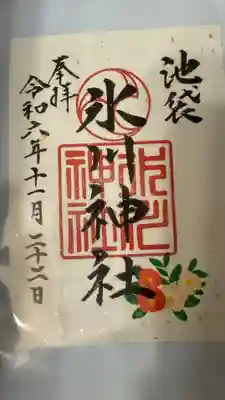 池袋
氷川神社
奉拝
令和六年十一月二十二日
氷川
神社